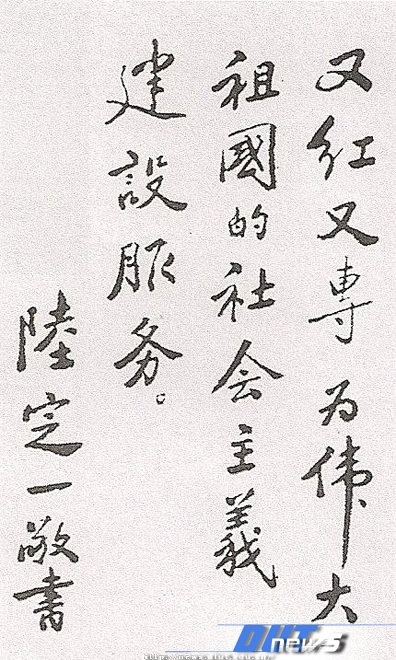 又红又專为伟大
祖國的社会主義
建設服务。
陸定一敬書
DUT news